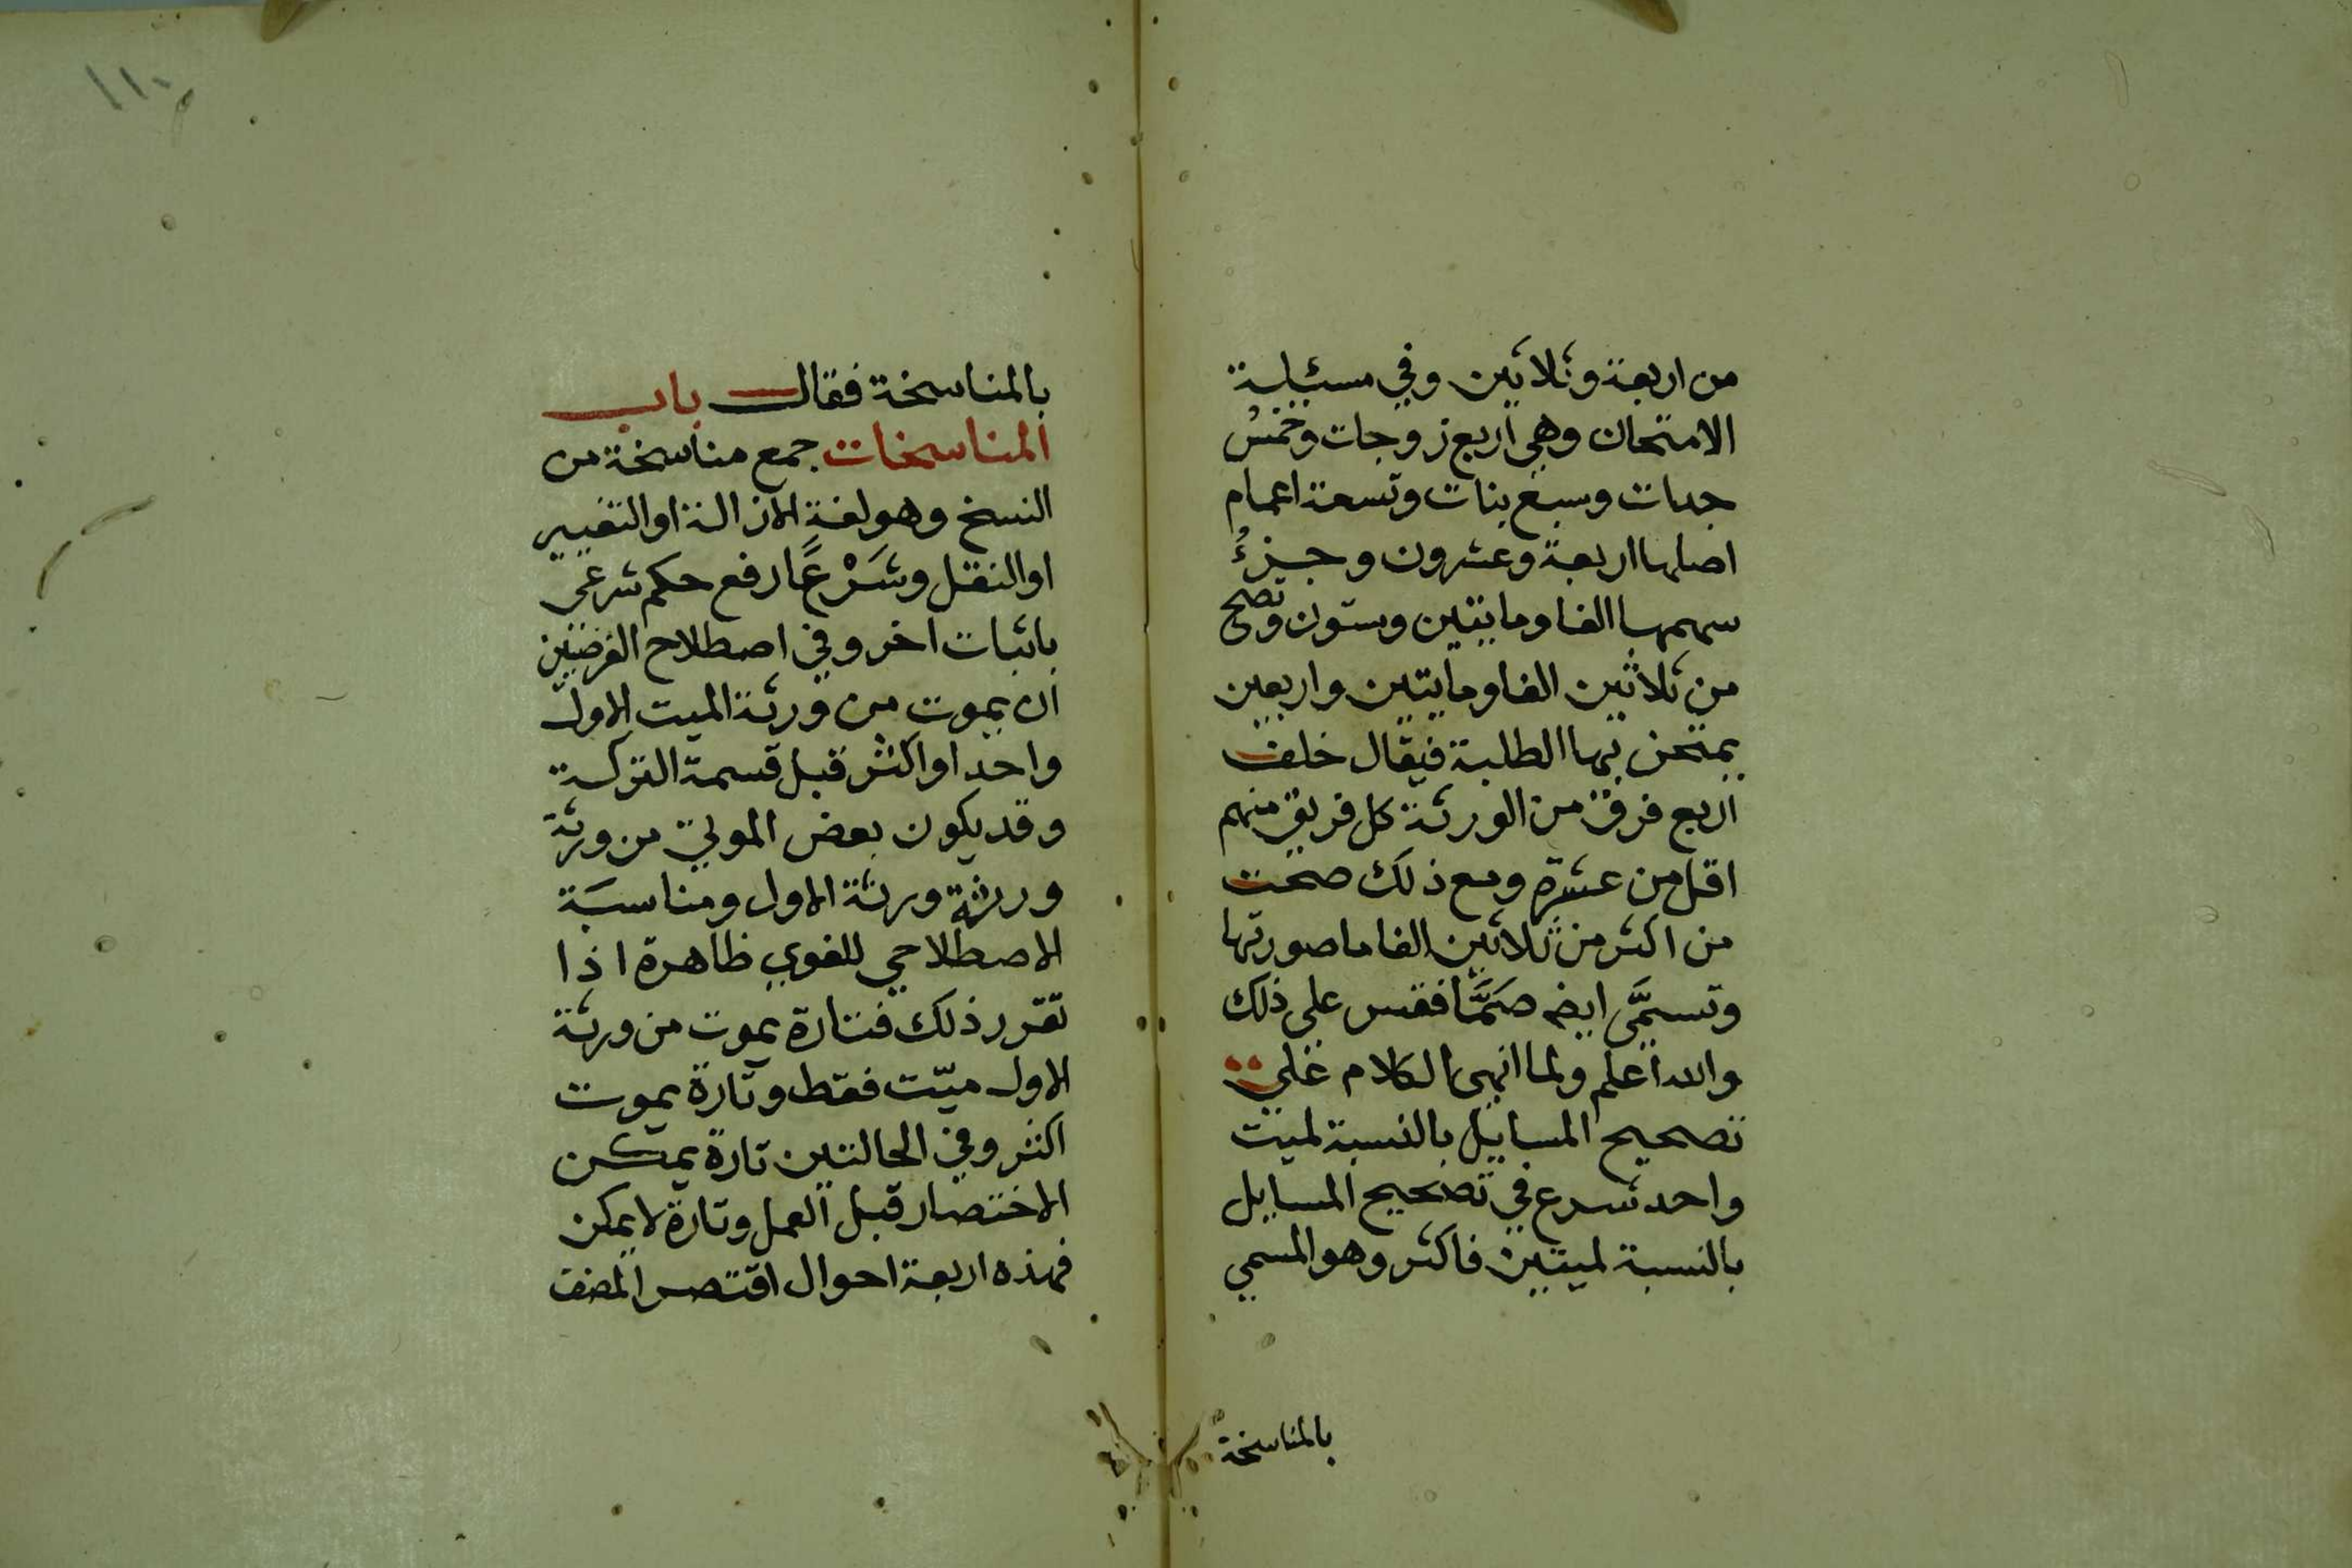 من اربعة وثلاثين وفي مسئلة
الامتحان وهي اربع زوجات وخمس
جدات وسبع بنات وتسعة اعمام
اصلها اربعة وعشرون وجزءُ
سهمها الفا ومايتين وستون وتصح
من ثلاثين الفا ومايتين واربعين
يمتحن بها الطلبة فيقال خلف
اربع فرق من الورثة كل فريق منهم
اقل من عشرة ومع ذلك صحت
من اكثر من ثلاثين الفا ما صورتها
وتسمَّى ايضه صَمَّا فقس علي ذلك
والله اعلم ولما انهي الكلام علي
تصحيح المسايل بالنسبة لميت
واحد شرع في تصحيح المسايل
بالنسبة لميتين فاكثر وهو المسمي
بالمناسخة
١١٠
بالمناسخة فقال باب
المناسخات جمع مناسخة من
النسخ وهو لغة الازالة او التغيير
او النقل وشَرْعًا رفع حكم شرعي
باثبات اخر وفي اصطلاح الفرضيين
ان يموت من ورثة الميت الاول
واحد او اكثر قبل قسمة التركة
وقد يكون بعض الموتي من ورثة
ورثة ورثة الاول ومناسبَة
الاصطلاحي للغوي ظاهرة اذا
تقرر ذلك فتارة يموت من ورثة
الاول ميّت فقط وتارة يموت
اكثر وفي الحالتين تارة يمكن
الاختصار قبل العمل وتارة لا يمكن
فهذه اربعة احوال اقتصر المصنف